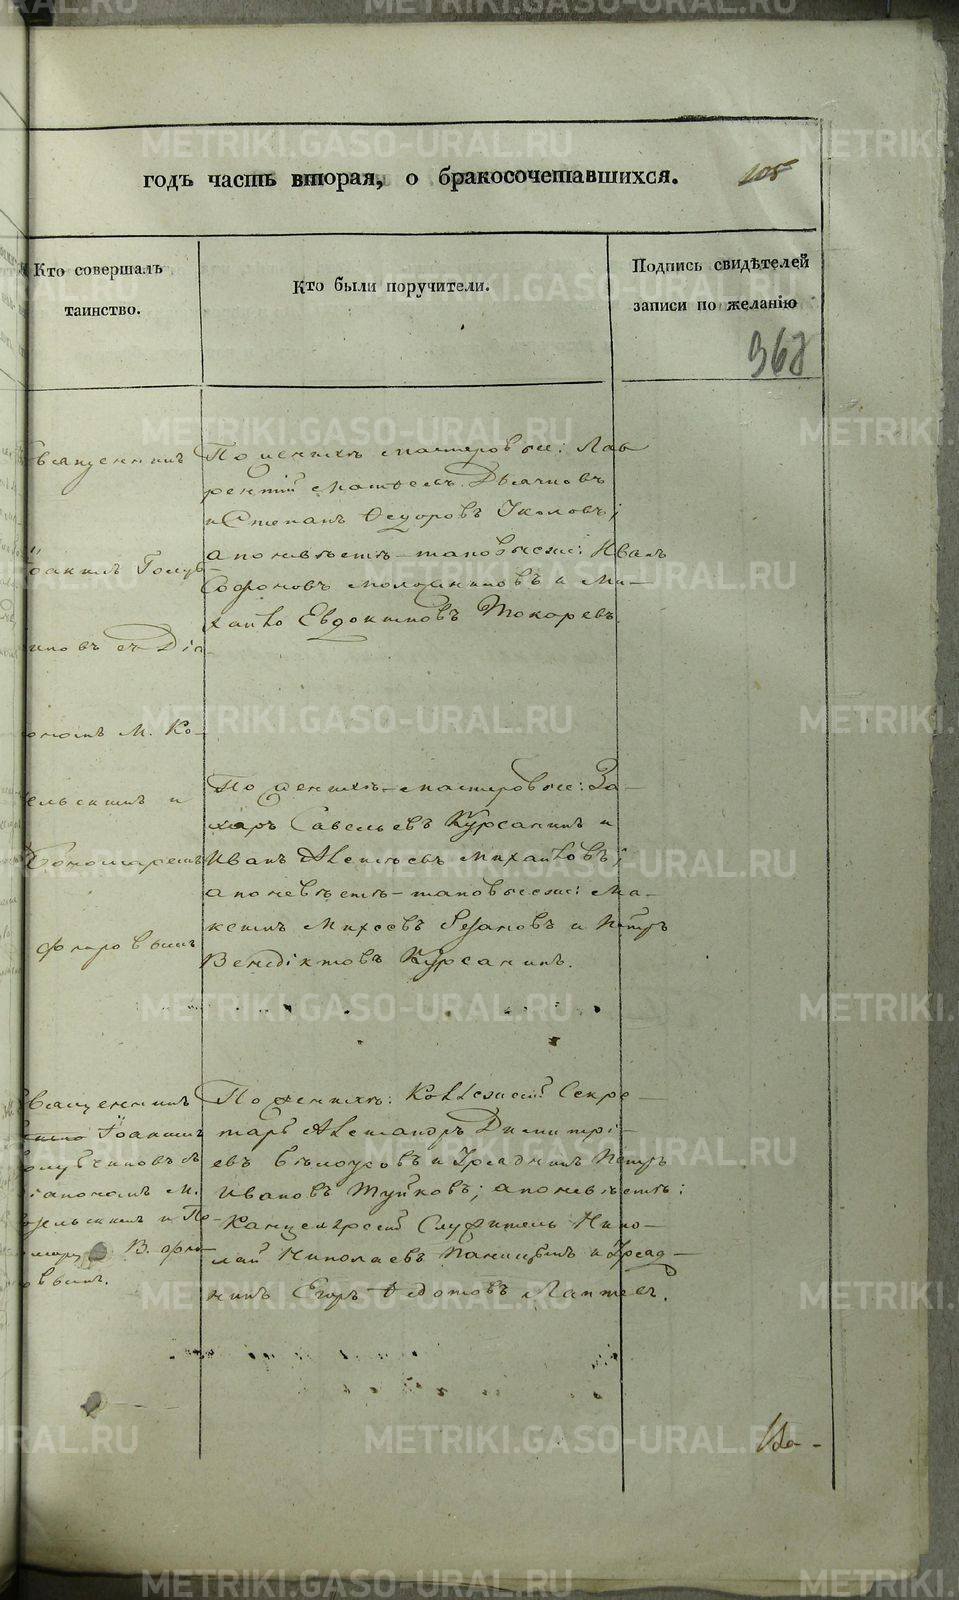 METRIKI.GASO-URAL.RU
годъ часть вторая, о бракосочетавшихся.
105
Кто совершалъ
таинство.
Кто были поручители.
Подпись свидѣтелей
записи по желанію
368
Священникъ
Іоакимъ Голуб-
чиковъ съ Діа-
кономъ М. Ко-
зельскимъ и
Пономаремъ
Флоровымъ
По женихѣ мастеровые: Лав
рентій Дьячковъ
и Степанъ Ѳедоровъ
а по невѣстѣ – таковыеже: Иванъ
Софроновъ Молошниковъ и Ми-
хайло Евдокимовъ Токаревъ.
По женихѣ – мастеровые: За-
харъ Савельевъ Курсанинъ и
Иванъ Алексѣевъ Михайловъ;
а по невѣстѣ – таковыеже: Ма-
ксимъ Михеевъ и Петръ
Венедіктовъ Курсанинъ.
Священникъ
Іоакимъ
Голубчиковъ съ
Діакономъ М.
Козельскимъ и По-
номаремъ В. Фло-
ровымъ.
По женихѣ: Коллежскій Секре-
тарь Александръ Димитрі-
евъ Бѣлоусовъ и Урядникъ Петръ
Ивановъ Туйковъ; а по невѣстѣ:
Канцелярскій Служитель Нико-
лай Николаевъ и Уряд-
никъ Егоръ Ѳедотовъ Лаптевъ.